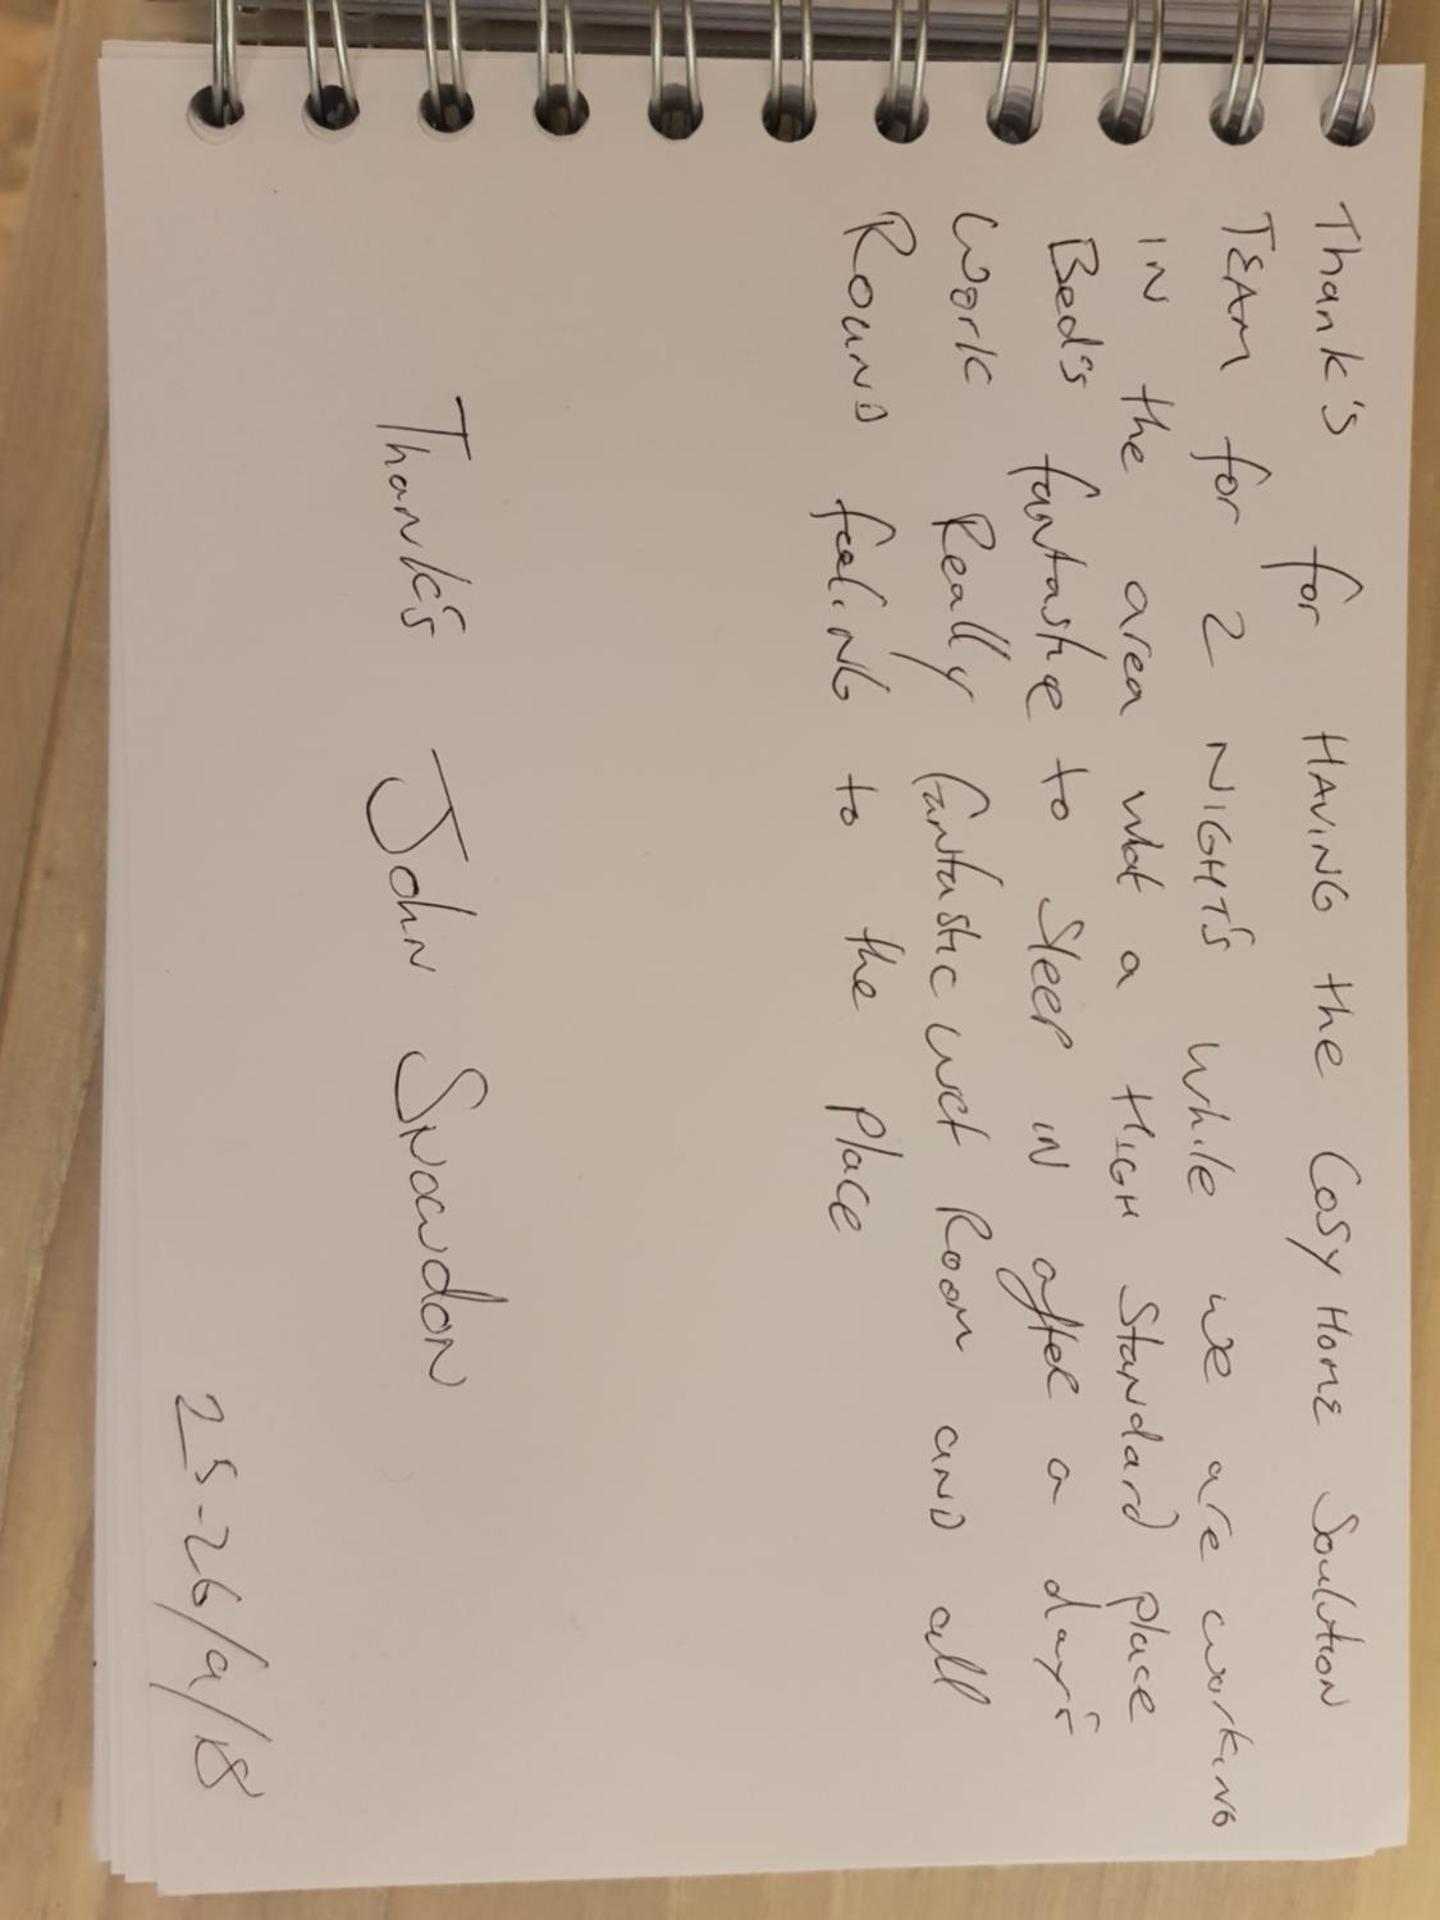 Thank's for HAVING the Cosy Home Soulution
TEAM for 2 NIGHT'S while we are working
IN the area what a HIGH Standard place
Bed's fantastic to Sleep IN after a day's
Work Really fantastic wet Room and all
Round feeling to the place
Thank's John Snowdon
25-26/9/18